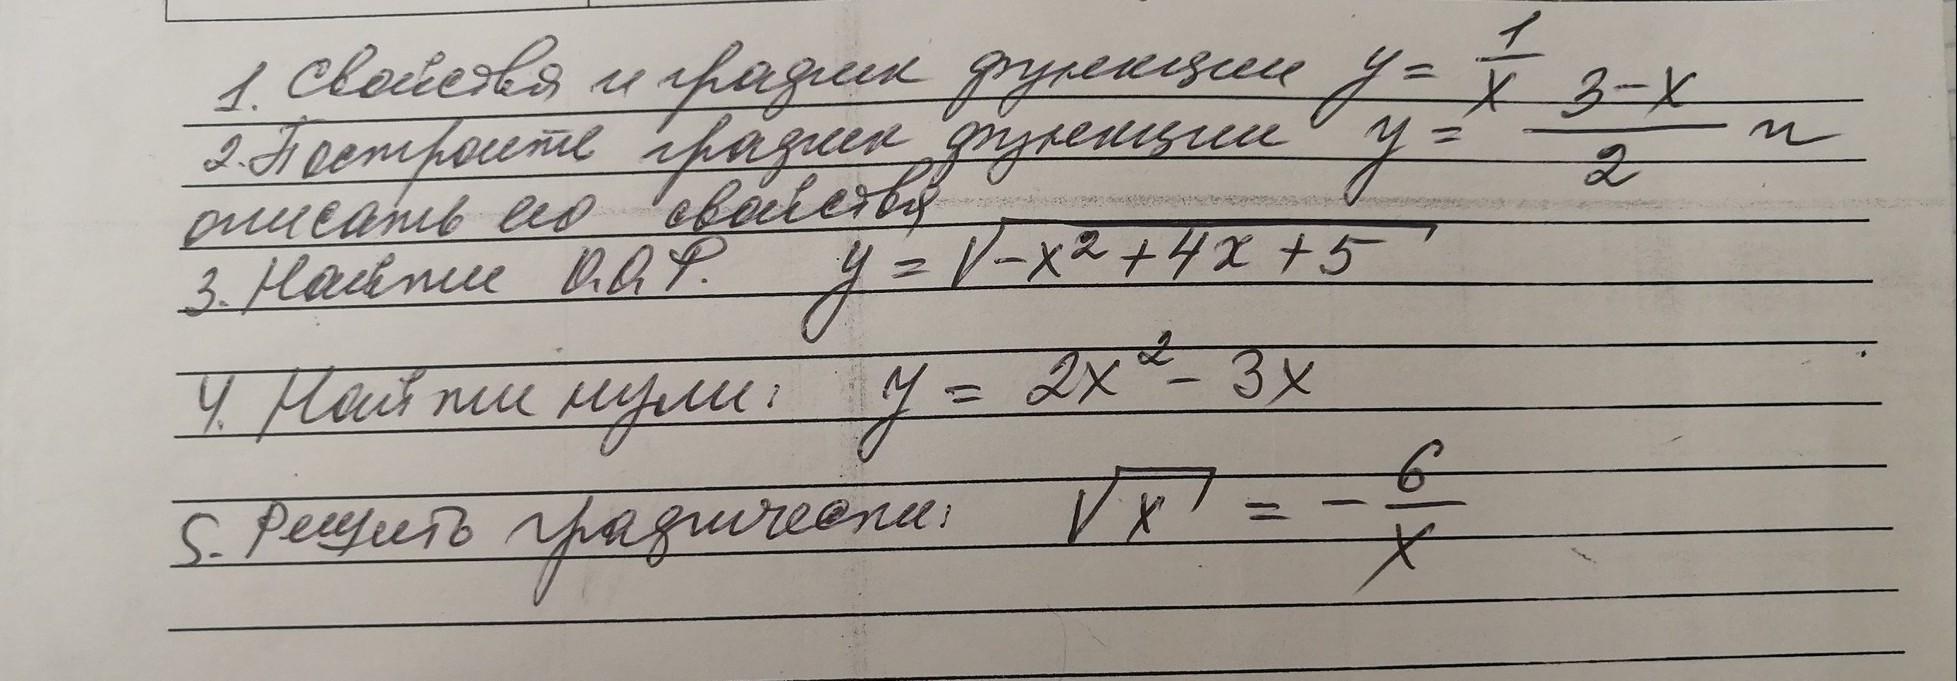 1. Свойства и график функции y = 1/x
2. Построите график функции y = (3-x)/2 и
описать его свойства
3. Найти О.О.Ф. y = √(-x² + 4x + 5)
4. Найти нули: y = 2x² - 3x
5. Решить графически: √x = - 6/x